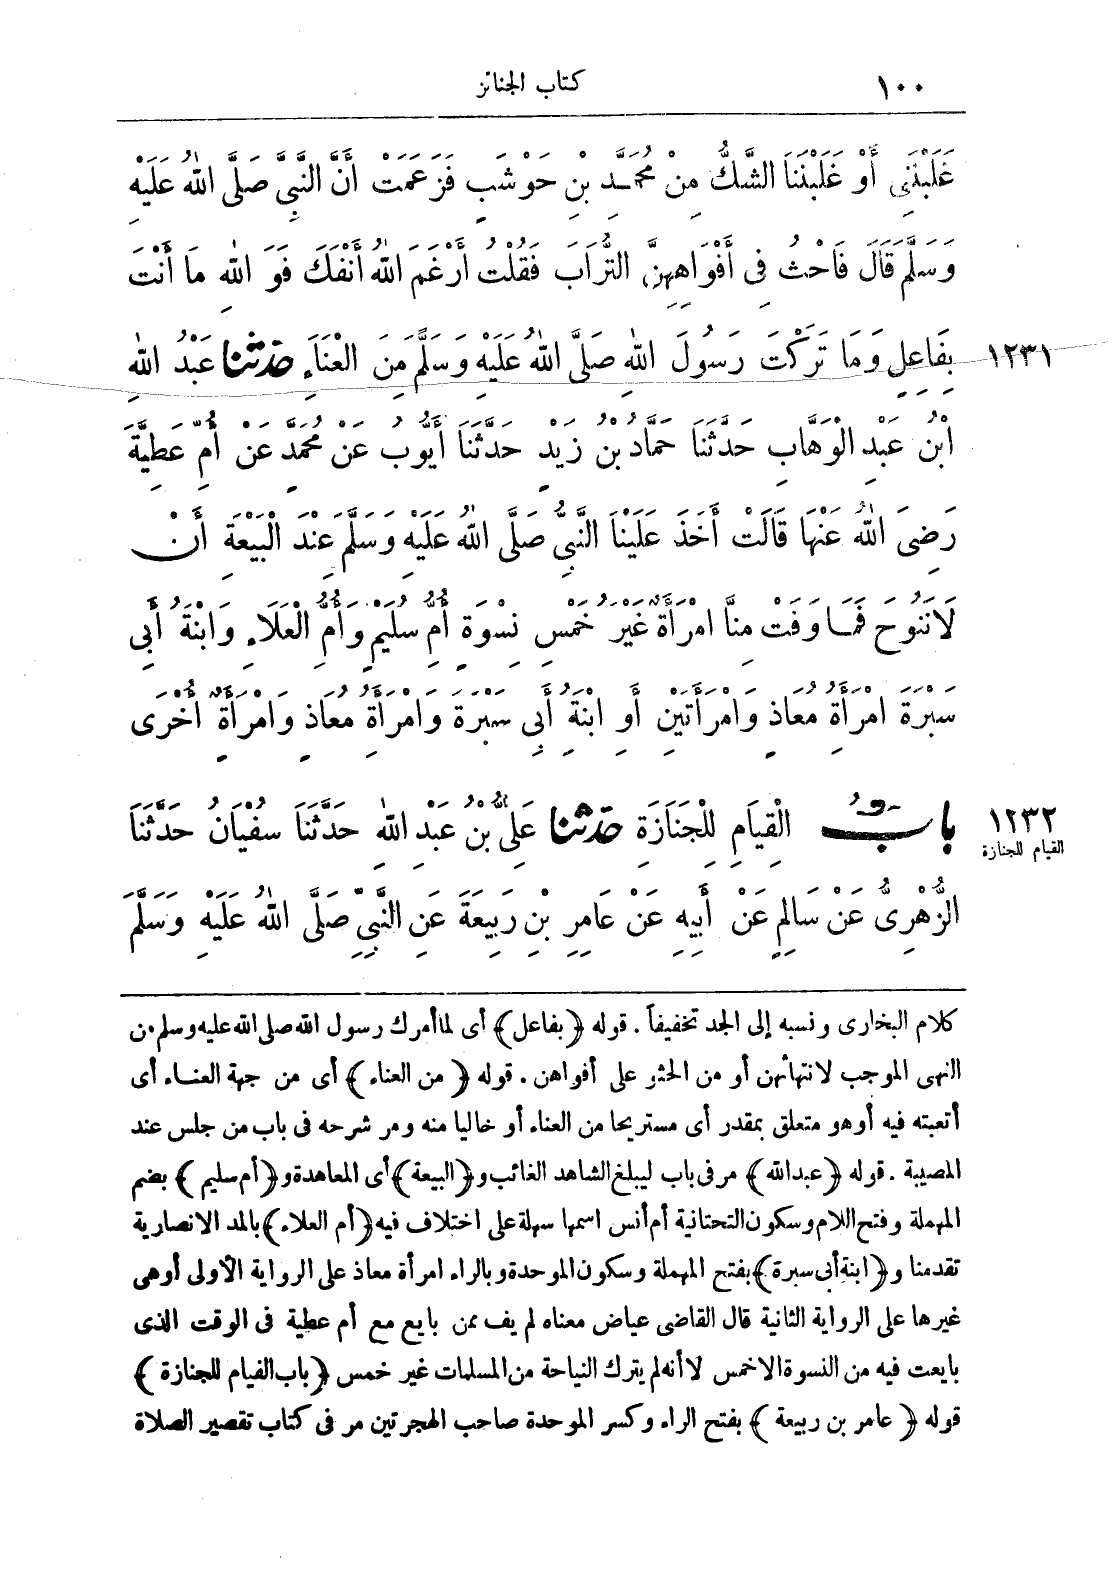 ١٠٠ كتاب الجنائز
غَلَبْنَنِى أَوْ غَلَبْنَنَا الشَّكُّ مِنْ مُحَمَّدِ بْنِ حَوْشَبٍ فَزَعَمَتْ أَنَّ النَّبِىَّ صَلَّى اللهُ عَلَيْهِ
وَسَلَّمَ قَالَ فَاحْثُ فِى أَفْوَاهِهِنَّ التُّرَابَ فَقُلْتُ أَرْغَمَ اللهُ أَنْفَكَ فَوَ اللهِ مَا أَنْتَ
١٢٣١ بِفَاعِلٍ وَمَا تَرَكْتَ رَسُولَ اللهِ صَلَّى اللهُ عَلَيْهِ وَسَلَّمَ مِنَ الْعَنَاءِ حَدَّثَنَا عَبْدُ اللهِ
ابْنُ عَبْدِ الْوَهَّابِ حَدَّثَنَا حَمَّادُ بْنُ زَيْدٍ حَدَّثَنَا أَيُّوبُ عَنْ مُحَمَّدٍ عَنْ أُمِّ عَطِيَّةَ
رَضِىَ اللهُ عَنْهَا قَالَتْ أَخَذَ عَلَيْنَا النَّبِىُّ صَلَّى اللهُ عَلَيْهِ وَسَلَّمَ عِنْدَ الْبَيْعَةِ أَنْ
لَا نَنُوحَ فَمَا وَفَتْ مِنَّا امْرَأَةٌ غَيْرُ خَمْسِ نِسْوَةٍ أُمُّ سُلَيْمٍ وَأُمُّ الْعَلَاءِ وَابْنَةُ أَبِى
سَبْرَةَ امْرَأَةُ مُعَاذٍ وَامْرَأَتَيْنِ أَوِ ابْنَةُ أَبِى سَبْرَةَ وَامْرَأَةُ مُعَاذٍ وَامْرَأَةٌ أُخْرَى
١٢٣٢ بابٌ الْقِيَامِ لِلْجَنَازَةِ حَدَّثَنَا عَلِىُّ بْنُ عَبْدِ اللهِ حَدَّثَنَا سُفْيَانُ حَدَّثَنَا
القيام للجنازة
الزُّهْرِىُّ عَنْ سَالِمٍ عَنْ أَبِيهِ عَنْ عَامِرِ بْنِ رَبِيعَةَ عَنِ النَّبِىِّ صَلَّى اللهُ عَلَيْهِ وَسَلَّمَ
كلام البخارى ونسبه إلى الجد تخفيفاً . قوله ﴿بفاعل﴾ أى لما أمرك رسول الله صلى الله عليه وسلم من
النهى الموجب لانتهائهن أو من الحثو على أفواهن . قوله ﴿من العناء﴾ أى من جهة العناء أى
أتعبته فيه أو هو متعلق بمقدر أى مستريحا من العناء أو خاليا منه ومر شرحه فى باب من جلس عند
المصيبة . قوله ﴿عبد الله﴾ مر فى باب ليبلغ الشاهد الغائب و﴿البيعة﴾ أى المعاهدة و﴿أم سليم﴾ بضم
المهملة وفتح اللام وسكون التحتانية أم أنس اسمها سهلة على اختلاف فيه ﴿أم العلاء﴾ بالمد الانصارية
تقدمنا و﴿ابنة أبى سبرة﴾ بفتح المهملة وسكون الموحدة وبالراء امرأة معاذ على الرواية الأولى أو هى
غيرها على الرواية الثانية قال القاضى عياض معناه لم يف ممن بايع مع أم عطية فى الوقت الذى
بايعت فيه من النسوة الا خمس لا أنه لم يترك النياحة من المسلمات غير خمس ﴿باب القيام للجنازة﴾
قوله ﴿عامر بن ربيعة﴾ بفتح الراء وكسر الموحدة صاحب الهجرتين مر فى كتاب تقصير الصلاة